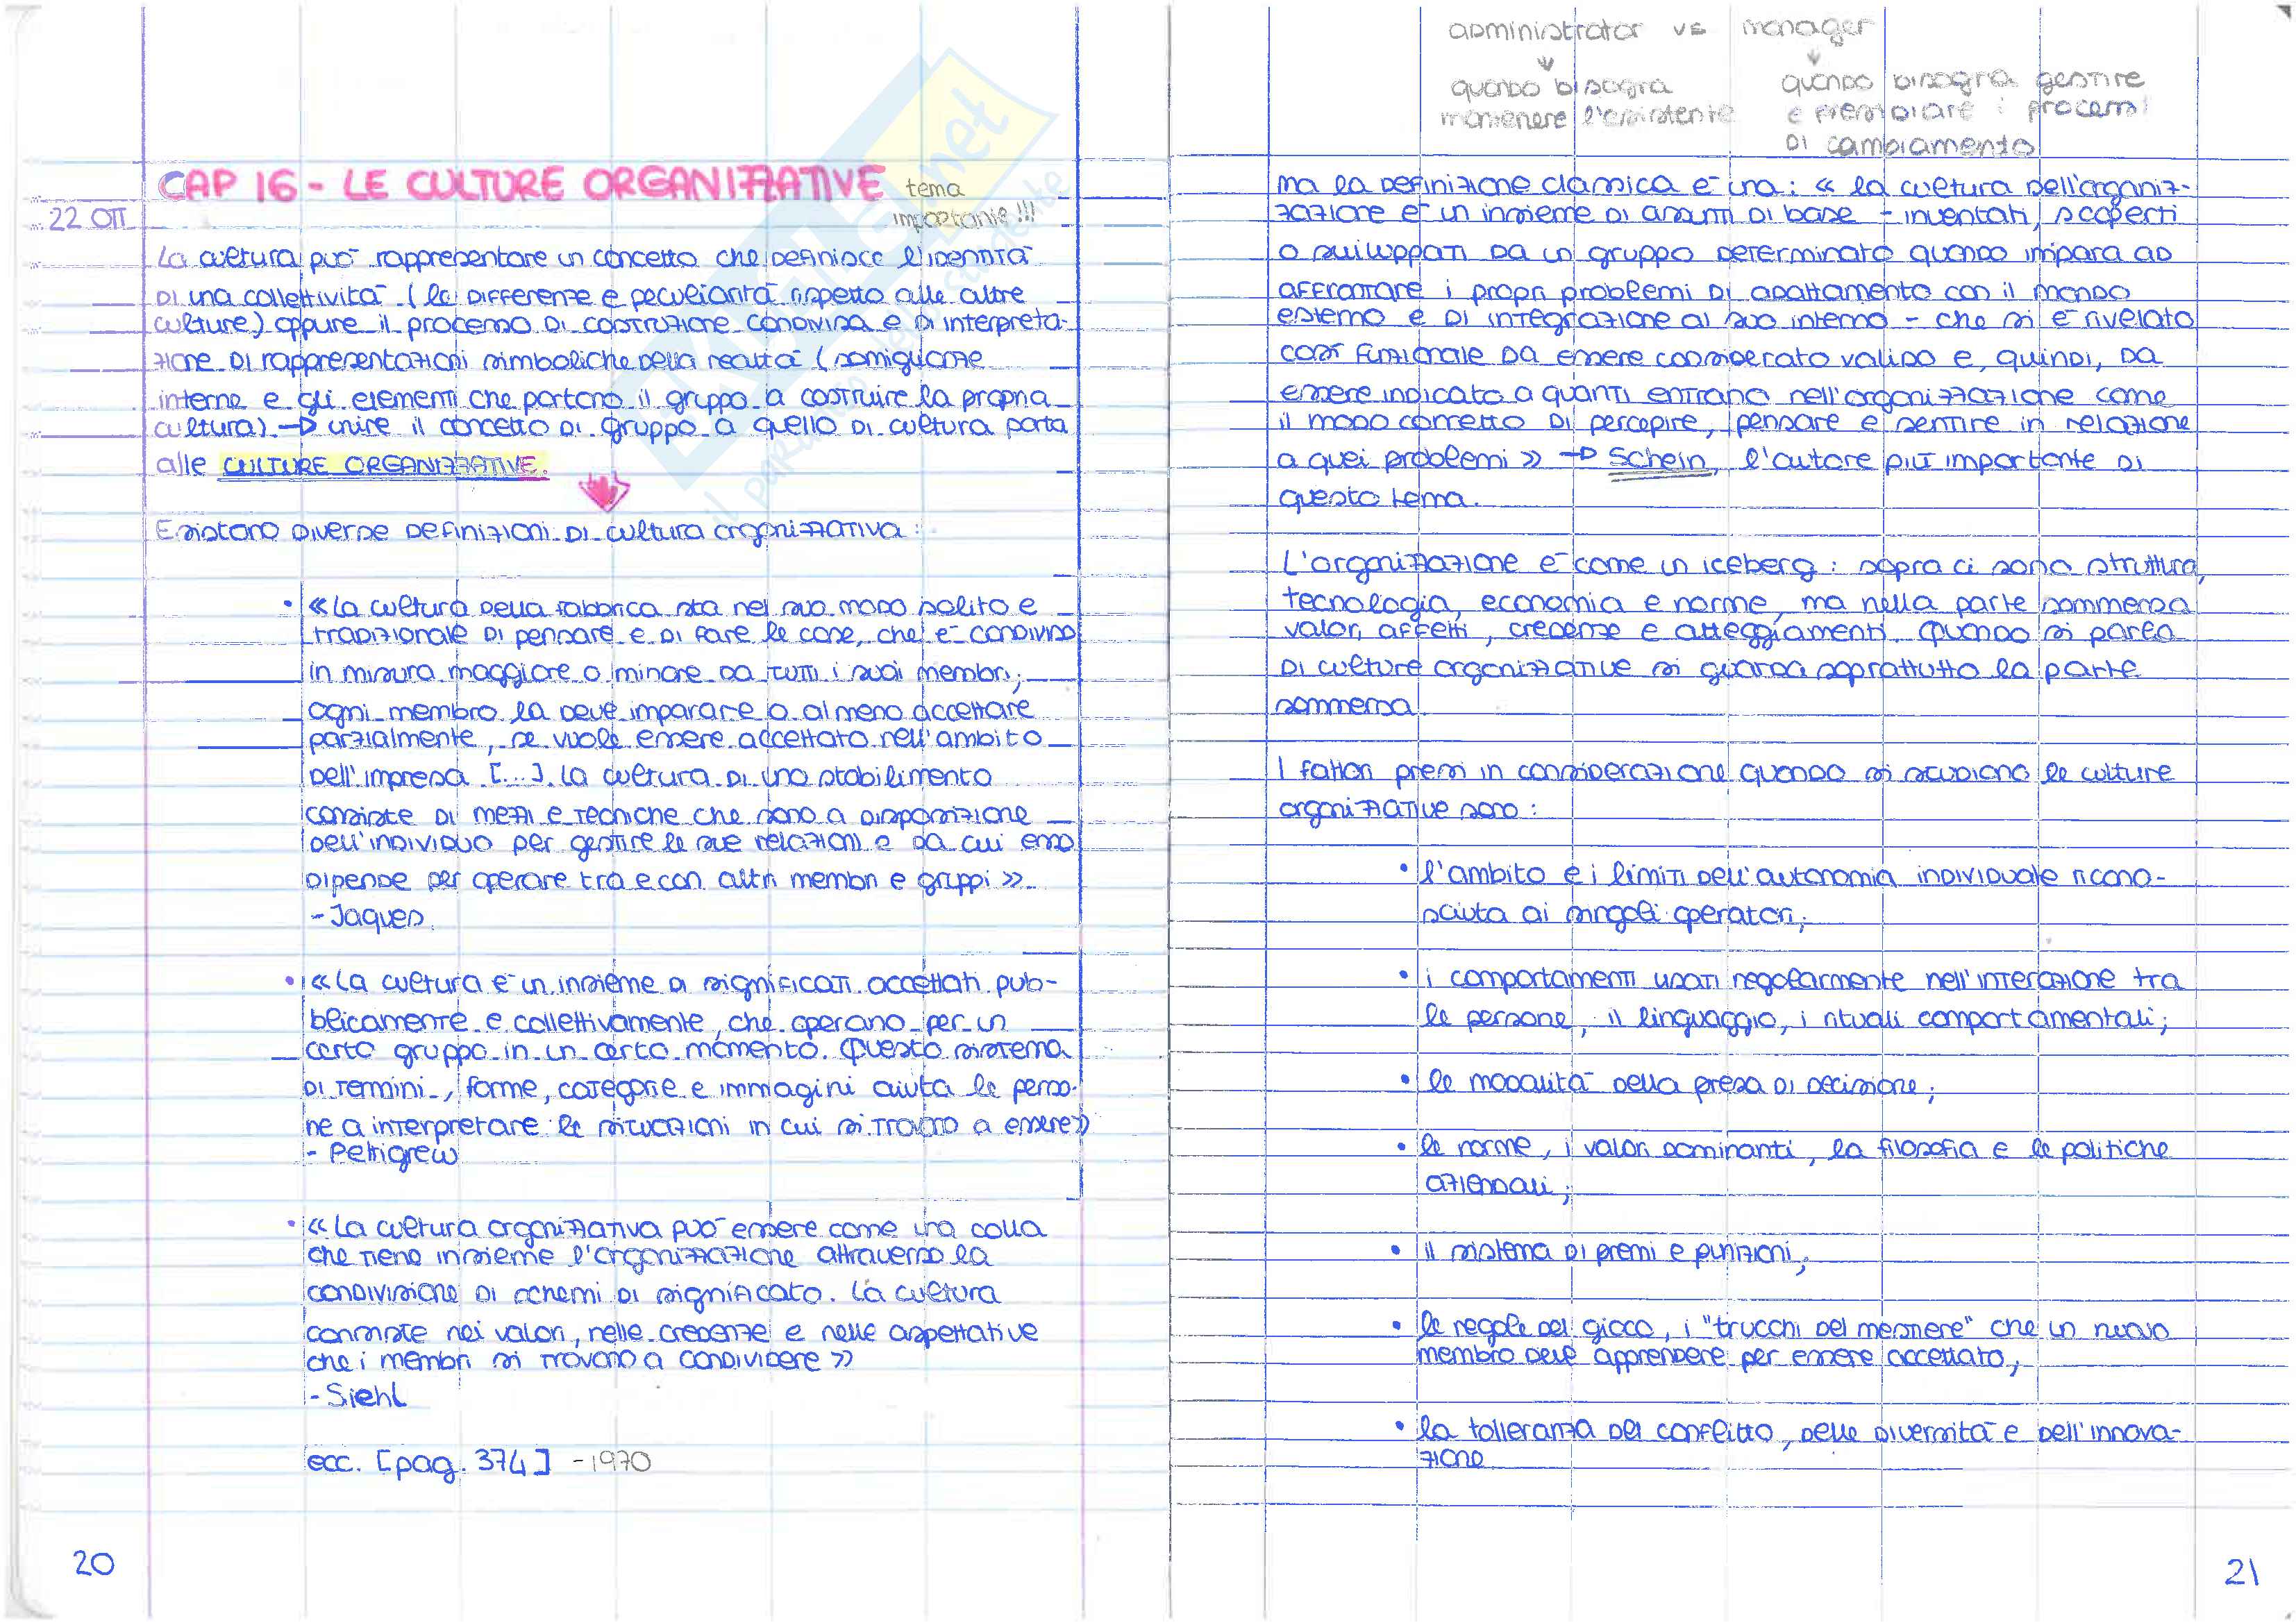 CAP 16 - LE CULTURE ORGANIZZATIVE tema
importante!!!
22 OTT
La cultura può rappresentare un concetto che definisce l'identità
di una collettività (le differenze e peculiarità rispetto alle altre
culture) oppure il processo di costruzione condivisa e di interpreta-
zione di rappresentazioni simboliche della realtà (somiglianze
interne e gli elementi che portano il gruppo a costruire la propria
cultura). → unire il concetto di gruppo a quello di cultura porta
alle CULTURE ORGANIZZATIVE.
Esistono diverse definizioni di cultura organizzativa:
• «La cultura della fabbrica sta nel suo modo solito e
tradizionale di pensare e di fare le cose, che è condiviso
in misura maggiore o minore da tutti i suoi membri;
ogni membro la deve imparare o almeno accettare
parzialmente, se vuole essere accettato nell'ambito
dell'impresa [...]. La cultura di uno stabilimento
consiste di mezzi e tecniche che sono a disposizione
dell'individuo per gestire le sue relazioni e da cui esso
dipende per operare tra e con altri membri e gruppi».
- Jaques.
• «La cultura è un insieme di significati accettati pub-
blicamente e collettivamente, che operano per un
certo gruppo in un certo momento. Questo sistema
di termini, forme, categorie e immagini aiuta le perso-
ne a interpretare le situazioni in cui si trovano a essere»
- Pettigrew
• «La cultura organizzativa può essere come una colla
che tiene insieme l'organizzazione attraverso la
condivisione di schemi di significato. La cultura
consiste nei valori, nelle credenze e nelle aspettative
che i membri si trovano a condividere»
- Siehl
ecc. [pag. 374] - 1970
20
administrator vs manager
↓ ↓
quando bisogna quando bisogna gestire
mantenere l'esistente e premiare i processi
di cambiamento
ma la definizione classica è una: «la cultura dell'organiz-
zazione è un insieme di assunti di base - inventati, scoperti
o sviluppati da un gruppo determinato quando impara ad
affrontare i propri problemi di adattamento con il mondo
esterno e di integrazione al suo interno - che si è rivelato
così funzionale da essere considerato valido e, quindi, da
essere indicato a quanti entrano nell'organizzazione come
il modo corretto di percepire, pensare e sentire in relazione
a quei problemi» → Schein, l'autore più importante di
questo tema.
L'organizzazione è come un iceberg: sopra ci sono struttura,
tecnologia, economia e norme, ma nella parte sommersa
valori, affetti, credenze e atteggiamenti. Quando si parla
di culture organizzative si guarda soprattutto la parte
sommersa.
I fattori presi in considerazione quando si studiano le culture
organizzative sono:
• l'ambito e i limiti dell'autonomia individuale ricono-
sciuta ai singoli operatori;
• i comportamenti usati regolarmente nell'interazione tra
le persone, il linguaggio, i rituali comportamentali;
• le modalità della presa di decisione;
• le norme, i valori dominanti, la filosofia e le politiche
aziendali;
• il sistema di premi e punizioni;
• le regole del gioco, i "trucchi del mestiere" che un nuovo
membro deve apprendere per essere accettato;
• la tolleranza del conflitto, delle diversità e dell'innova-
zione
21